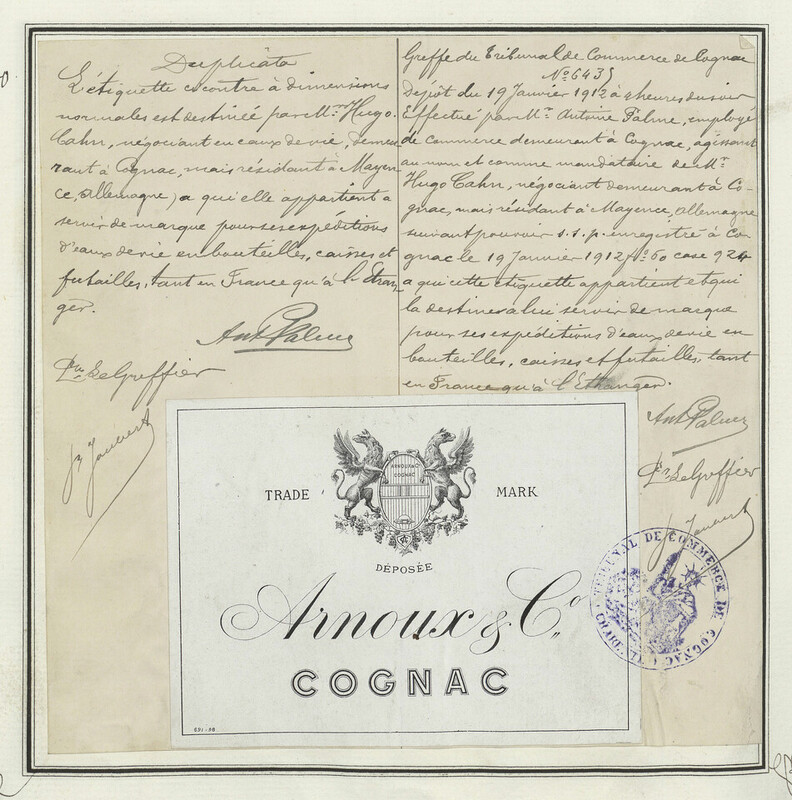 Duplicata
L'étiquette ci contre à dimensions
normales est destinée par Mr Hugo
Cahn, négociant en eaux de vie, demeu
rant à Cognac, mais résidant à Mayen
ce, Allemagne, a qui elle appartient à
servir de marque pour ses expéditions
d'eaux de vie en bouteilles, caisses et
futailles, tant en France qu'à l'Etran
ger.
Ant Palme
Pr Le Greffier
J Jouvert
Greffe du Tribunal de Commerce de Cognac
No 6435
Dépôt du 19 Janvier 1912 à 4 heures du soir
Effectué par Mr Antoine Palme, employé
de commerce demeurant à Cognac, agissant
au nom et comme mandataire de Mr
Hugo Cahn, négociant demeurant à Co-
gnac, mais résidant à Mayence, Allemagne
suivant pouvoir s.s.p. enregistré à Co
gnac le 19 Janvier 1912 fo 60 case 924
a qui cette étiquette appartient et qui
la destine a lui servir de marque
pour ses expéditions d'eaux de vie en
bouteilles, caisses et futailles, tant
en France qu'à l'Etranger.
Ant Palme
Pr Le Greffier
ARNOUX & Co
COGNAC
TRADE MARK
DÉPOSÉE
Arnoux & Co.
COGNAC
TRIBUNAL DE COMMERCE DE COGNAC